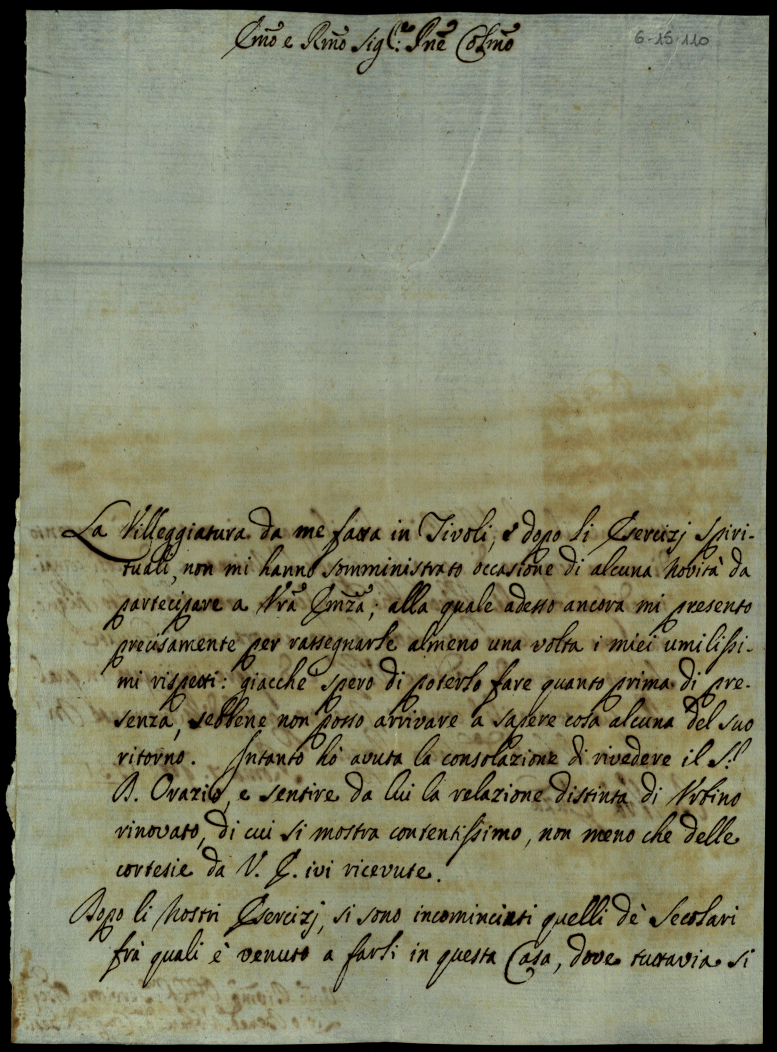 Emo e Rmo Sigr: Pne Colmo
6-15-110
La Villeggiatura da me fatta in Tivoli, e dopo li Esercizj Spiri-
tuali, non mi hanno somministrato occasione di alcuna novità da
partecipare a Vra Emza; alla quale adesso ancora mi presento
precisamente per rassegnarle almeno una volta i miei umilissi-
mi rispetti: giacche spero di poterlo fare quanto prima di pre-
senza, sebbene non posso arrivare a sapere cosa alcuna del suo
ritorno. Intanto hò avuta la consolazione di rivedere il S.r
B. Orazio, e sentire da lui la relazione distinta di Urbino
rinovato, di cui si mostra contentissimo, non meno che delle
cortesie da V. E. ivi ricevute.
Dopo li nostri Esercizj, si sono incominciati quelli dè Secolari
frà quali è venuto a farli in questa Casa, dove tuttavia si